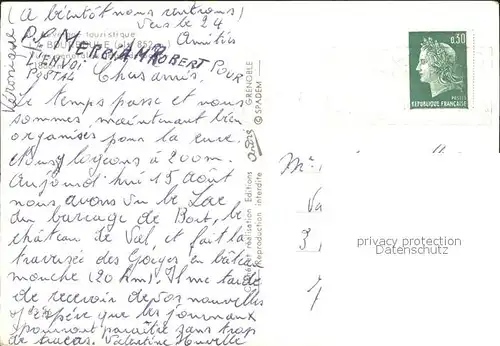 (A bientôt nous rentrons)
Vers le 24
Amitiés
Véronique
P.S MERCI A MR ROBERT POUR
L'ENVOI
POSTAL
touristique
BOURBOULE (alt. 852 m)
Chers amis,
Le temps passe et nous
sommes maintenant bien
organisés pour la cure.
Nous logeons à 200m.
Aujourd'hui 15 Août
nous avons vu le Lac
du barrage de Bort, le
château de Val, et fait la
traversée des Gorges en bateau
mouche (20 km). Il me tarde
de recevoir de vos nouvelles
J'espère que les journaux
pourront paraître sans trop
de tracas. Valentine
GRENOBLE
© SPADEM
réalisation Editions
Reproduction interdite
0,30
POSTES
REPUBLIQUE FRANÇAISE
Mr
Va
3,
privacy protection
Datenschutz